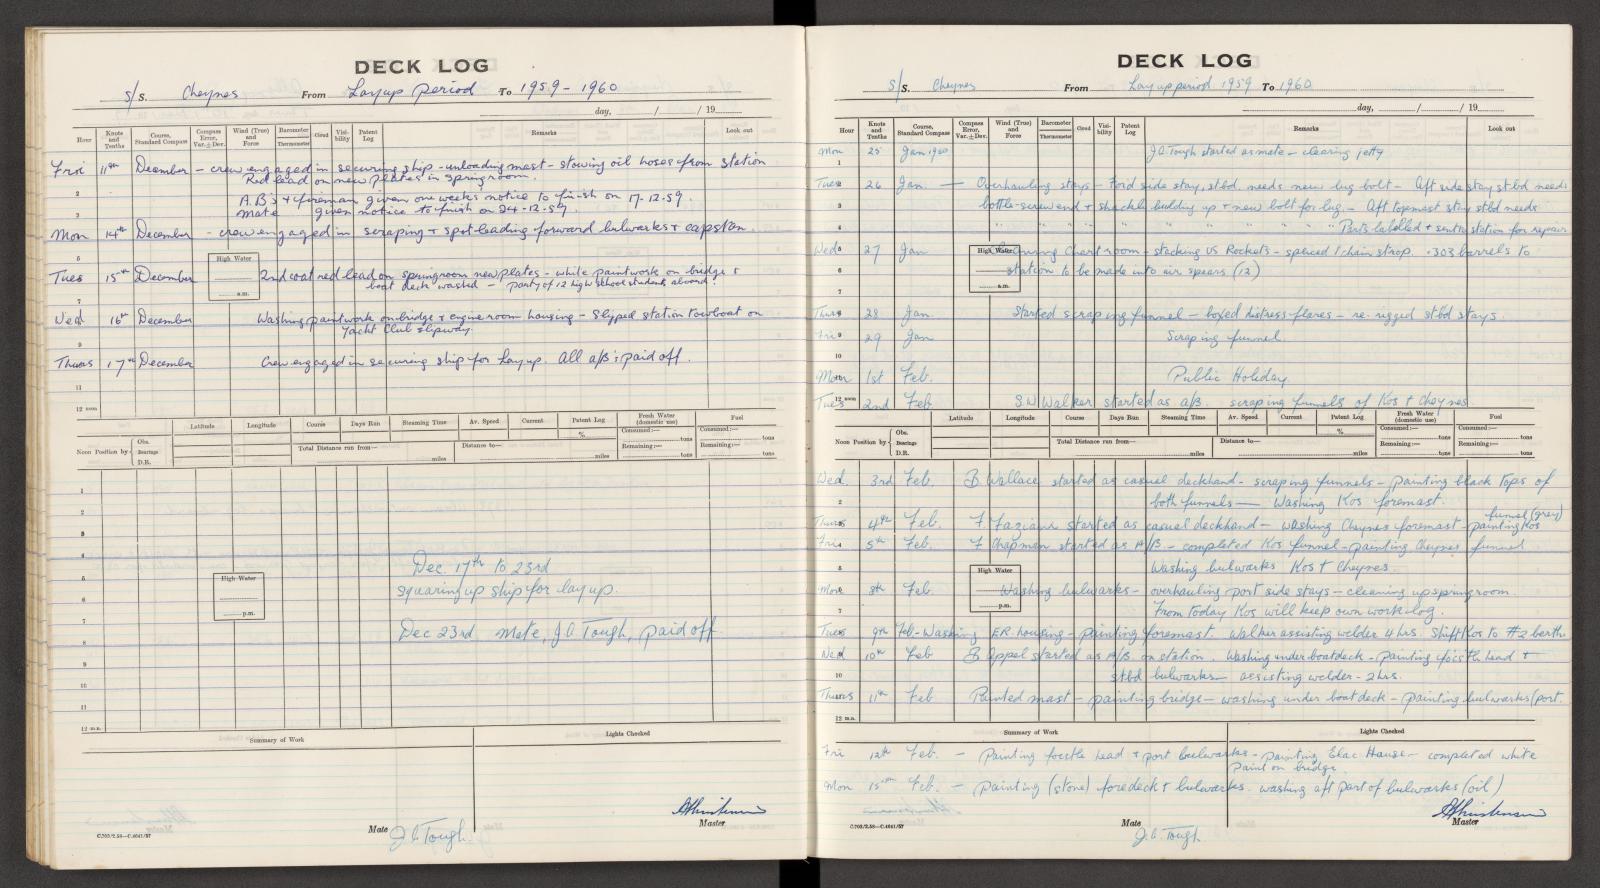 DECK LOG
S/S. Cheynes From Layup period To 1959 - 1960
day, / / 19
Hour Knots and Tenths Course, Standard Compass Compass Error, Var. ± Dev. Wind (True) and Force Barometer Thermometer Cloud Visibility Patent Log Remarks Look out
Fri 11th December - crew engaged in securing ship - unloading mast - stowing oil hoses from station
Red lead on new plates in springroom.
2
A.B's & fireman given one weeks notice to finish on 17-12-59
3 Mate given notice to finish on 24-12-59.
Mon 14th December - crew engaged in scraping & spot-leading forward bulwarks & capstan.
5
High Water
a.m.
Tues 15th December 2nd coat red-lead on springroom new plates - while paintwork on bridge &
boat deck washed - party of 12 high school students aboard!
7
Wed 16th December Washing paintwork on bridge & engine room housing - slipped station towboat on
Yacht Club slipway.
9
Thurs 17th December Crew engaged in securing ship for layup. All a/B's paid off.
11
12 noon
Noon Position by Obs. Bearings D.R. Latitude Longitude Course Days Run Steaming Time Av. Speed Current Patent Log % Fresh Water (domestic use) Fuel
Consumed:— tons Consumed:— tons
Total Distance run from— miles Distance to— miles Remaining:— tons Remaining:— tons
1
2
3
4
5
Dec. 17th to 23rd
6 High Water
squaring up ship for lay up.
p.m.
7
Dec 23rd, Mate, J.C. Tough, paid off
8
9
10
11
12 m.n.
Summary of Work Lights Checked
Master
C.703/2.58—C.4041/57 Mate J.C. Tough
DECK LOG
S/S. Cheynes From Lay up period 1959 To 1960
day, / / 19
Hour Knots and Tenths Course, Standard Compass Compass Error, Var. ± Dev. Wind (True) and Force Barometer Thermometer Cloud Visibility Patent Log Remarks Look out
Mon 25 Jan 1960 J.C. Tough started as mate - clearing jetty
1
Tues 26 Jan. — Overhauling stays - Ford side stay, stbd. needs new lug bolt - Aft side stay stbd needs
3 bottle-screw end & shackle building up & new bolt for lug - Aft topmast stay stbd needs
4 " " " " " " " " " " Parts labelled & sent to station for repair
Wed 27 Jan Cleaning Chart room - stacking US Rockets - spliced 1 chain strop. .303 barrels to
6 High Water station to be made into air spears (12)
7 a.m.
Thurs 28 Jan. Started scraping funnel - boxed distress flares - re-rigged stbd stays.
Fri 29 Jan Scraping funnel
10
Mon 1st Feb. Public Holiday.
Tues 12 noon 2nd Feb S.W Walker started as a/B. scraping funnels of Kos & Cheynes
Noon Position by Obs. Bearings D.R. Latitude Longitude Course Days Run Steaming Time Av. Speed Current Patent Log % Fresh Water (domestic use) Fuel
Consumed:— tons Consumed:— tons
Total Distance run from— miles Distance to— miles Remaining:— tons Remaining:— tons
Wed. 3rd Feb B Wallace started as casual deckhand - scraping funnels - painting black tops of
2 both funnels — Washing Kos foremast.
funnel (grey)
Thurs 4th Feb. F. started as casual deckhand - washing Cheynes foremast - painting Kos
Fri 5th Feb. F Chapman started as A/B. - completed Kos funnel - painting Cheynes funnel
5 Washing bulwarks Kos & Cheynes.
High Water
Mon 8th Feb. Washing bulwarks - overhauling port side stays - cleaning up springroom.
7 p.m. From today Kos will keep own work log.
Tues 9th Feb - Washing E.R. housing - painting foremast. Walker assisting welder 4 hrs. Shift Kos to #2 berth.
Wed 10th Feb B Appel started as A/B. on station. Washing under boatdeck - painting foc'stle head &
10 stbd bulwarks — assisting welder - 2 hrs.
Thurs 11th Feb Painted mast - painting bridge - washing under boat deck - painting bulwarks (port.
12 m.n.
Summary of Work Lights Checked
Fri 12th Feb. - Painting focstle head & port bulwarks - painting Elac House - completed white
paint on bridge.
Mon 15th Feb. - Painting (stone) foredeck & bulwarks. washing aft part of bulwarks (oil)
Master
C.703/2.58—C.4041/57 Mate
J.C. Tough.